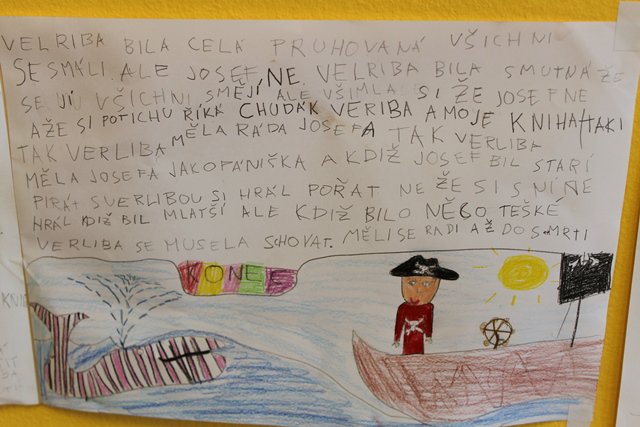 VELRIBA BILA CELÁ PRUHOVANÁ VŠICHNI
SE SMÁLI ALE JOSEF NE VELRIBA BILA SMUTNÁ ŽE
SE JÍ VŠICHNI SMĚJÍ ALE VŠIMLA SI ŽE JOSEF NE
AŽE SI POTICHU ŘÍKÁ CHUDÁK VERIBA A MOJE KNIHA TAKI
TAK VERLIBA MĚLA RÁDA JOSEFA TAK VERLIBA
MĚLA JOSEFA JAKO PÁNIČKA A KDIŽ JOSEF BIL STARÍ
PIRÁT SVERLIBOU SI HRÁL POŘAT NE ŽE SI S NÍ NE
HRÁL KDIŽ BIL MLATŠÍ ALE KDIŽ BILO NĚCO TEŠKÉ
VERLIBA SE MUSELA SCHOVAT. MĚLI SE RADI AŽ DO SMRTI
KONEC